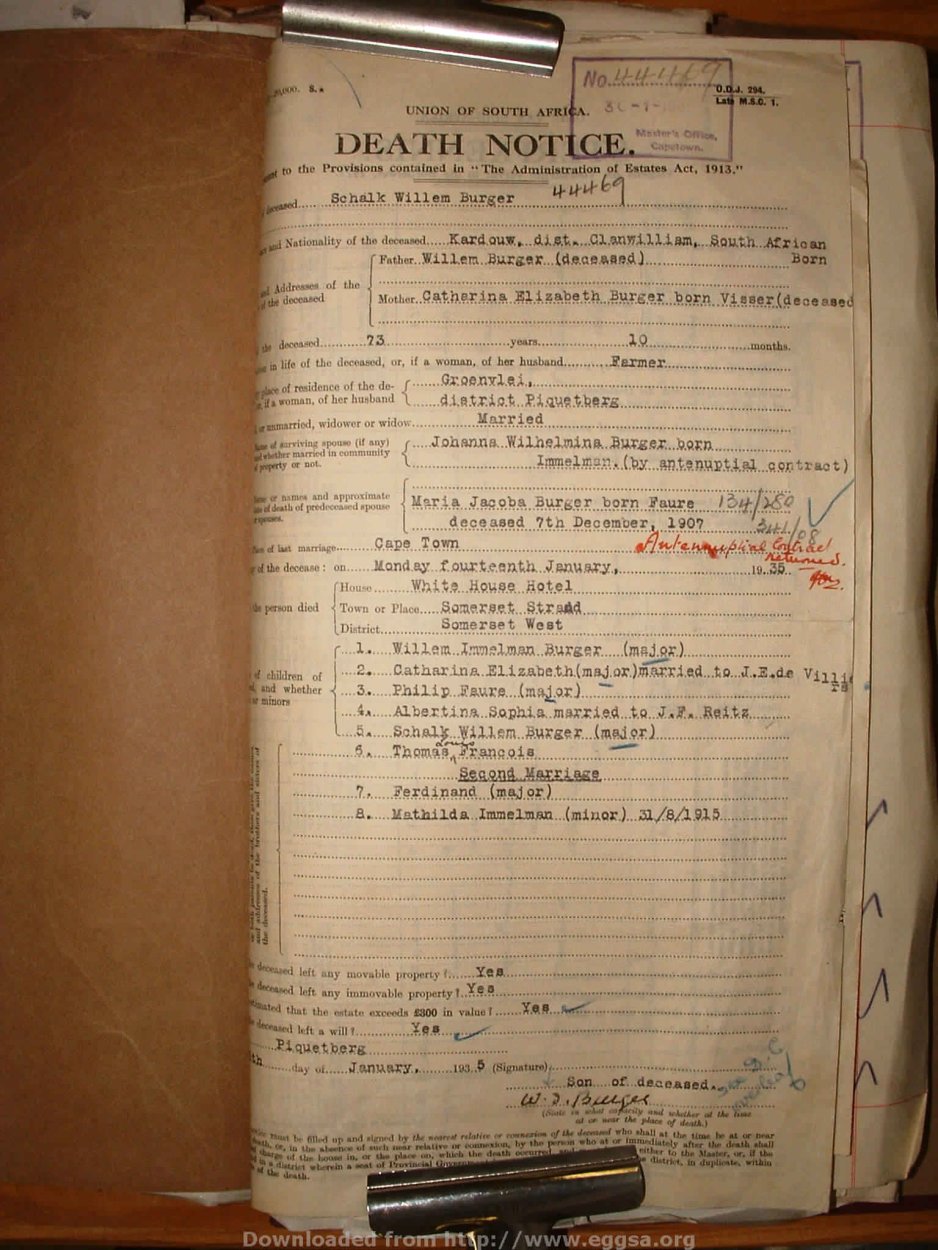 20,000. S.*
No. 44469
O.D.J. 294.
Late M.S.C. 1.
UNION OF SOUTH AFRICA.
Master's Office,
Capetown.
DEATH NOTICE.
to the Provisions contained in "The Administration of Estates Act, 1913."
44469
deceased..... Schalk Willem Burger
and Nationality of the deceased..... Kardouw, dist. Clanwilliam, South African
Born
Father Willem Burger (deceased)
Addresses of the
of the deceased
Mother Catharina Elizabeth Burger born Visser(deceased
the deceased 73 years 10 months.
in life of the deceased, or, if a woman, of her husband Farmer
place of residence of the de-
if a woman, of her husband
Groenvlei,
district Piquetberg
unmarried, widower or widow Married
of surviving spouse (if any)
whether married in community
property or not.
Johanna Wilhelmina Burger born
Immelman. (by antenuptial contract)
or names and approximate
of death of predeceased spouse
or spouses.
Maria Jacoba Burger born Faure 134/280
deceased 7th December, 1907 341/08
of last marriage Cape Town
Antenuptial Contract
Returned.
of the decease: on Monday fourteenth January, 1935
person died
House White House Hotel
Town or Place Somerset Strand
District Somerset West
of children of
and whether
or minors
1. Willem Immelman Burger (major)
2. Catharina Elizabeth(major)married to J.E.de Villie
rs
3. Philip Faure (major)
4. Albertina Sophia married to J.F. Reitz
5. Schalk Willem Burger (major)
6. Thomas Louis Francois
Second Marriage
7. Ferdinand (major)
8. Mathilda Immelman (minor) 31/8/1915
and addresses of the brothers and sisters of
the deceased.
deceased left any movable property? Yes
deceased left any immovable property? Yes
that the estate exceeds £300 in value? Yes
deceased left a will? Yes
Piquetberg
th day of January, 1935 (Signature)
Son of deceased.
(State in what capacity and whether at the time
at or near the place of death.)
must be filled up and signed by the nearest relative or connexion of the deceased who shall at the time be at or near
death, or, in the absence of such near relative or connexion, by the person who at or immediately after the death shall
charge of the house in, or the place on, which the death occurred, either to the Master, or, if the
in a district wherein a seat of Provincial district, in duplicate, within
of the death.
Downloaded from http://www.eggsa.org